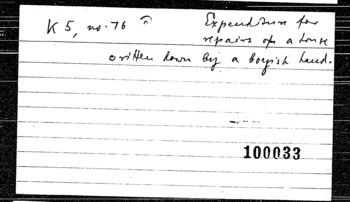 K 5, no. 76 Expenditure for
repairs of a house
written down by a boyish hand.
100033